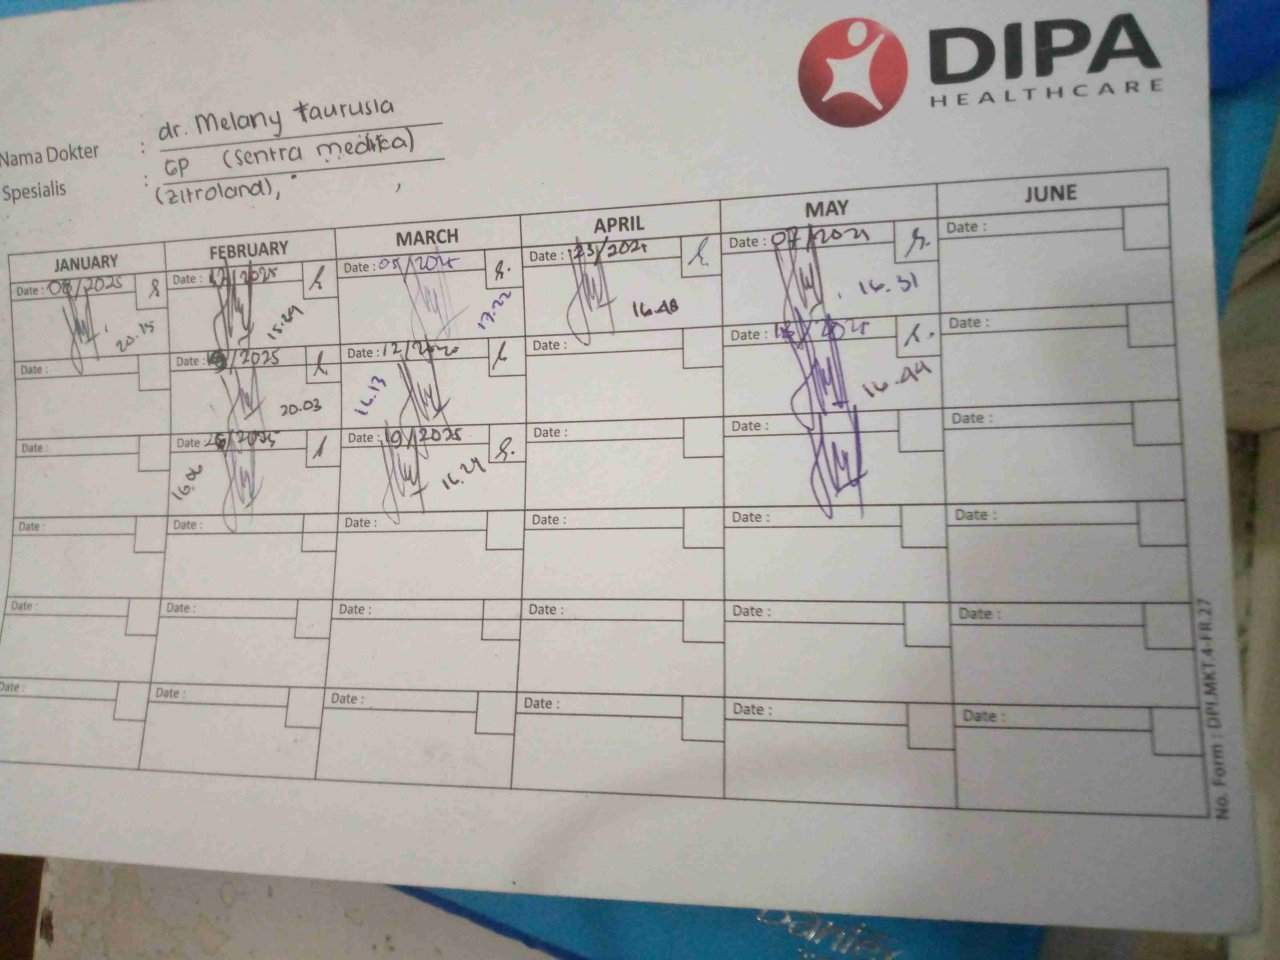 DIPA
HEALTHCARE
Nama Dokter : dr. Melany Taurusia
Spesialis : GP (Sentra medika)
(Zitroland),
JANUARY FEBRUARY MARCH APRIL MAY JUNE
Date : 08/2025 Date : 12/2025 Date : 05/2025 Date : 23/2025 Date : 07/2025 Date :
20.15 15.49 17.22 16.48 16.31
Date : Date : /2025 Date : 12/2025 Date : Date : /2025 Date :
20.03 16.13 16.44
Date : Date : 26/2025 Date : 19/2025 Date : Date : Date :
16.06 16.24
Date : Date : Date : Date : Date : Date :
Date : Date : Date : Date : Date : Date :
Date : Date : Date : Date : Date : Date :
No. Form : DPI.MKT.4-FR.27